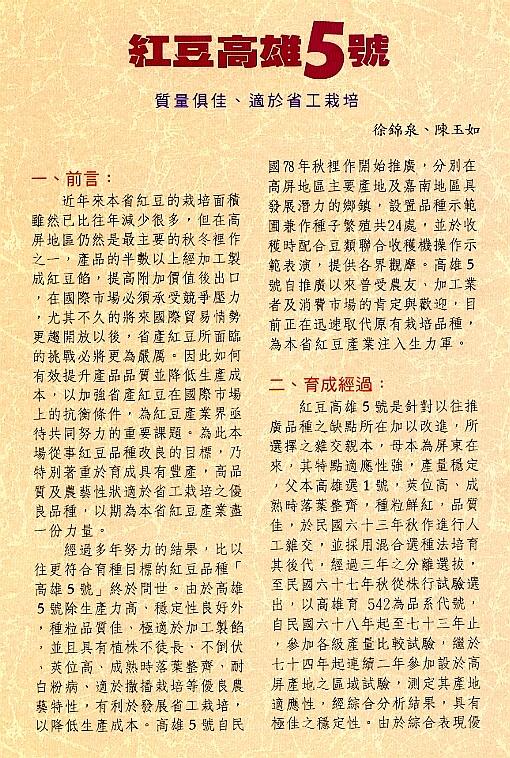 紅豆高雄5號
質量俱佳、適於省工栽培
徐錦泉、陳玉如
一、前言：
近年來本省紅豆的栽培面積
雖然已比往年減少很多，但在高
屏地區仍然是最主要的秋冬裡作
之一，產品的半數以上經加工製
成紅豆餡，提高附加價值後出口
，在國際市場必須承受競爭壓力
，尤其不久的將來國際貿易情勢
更趨開放以後，省產紅豆所面臨
的挑戰必將更為嚴厲。因此如何
有效提升產品品質並降低生產成
本，以加強省產紅豆在國際市場
上的抗衡條件，為紅豆產業界亟
待共同努力的重要課題。為此本
場從事紅豆品種改良的目標，乃
特別著重於育成具有豐產，高品
質及農藝性狀適於省工栽培之優
良品種，以期為本省紅豆產業盡
一份力量。
經過多年努力的結果，比以
往更符合育種目標的紅豆品種「
高雄5號」終於問世。由於高雄
5號除生產力高、穩定性良好外
，種粒品質佳、極適於加工製餡
，並且具有植株不徒長、不倒伏
、莢位高、成熟時落葉整齊、耐
白粉病、適於撒播栽培等優良農
藝特性，有利於發展省工栽培，
以降低生產成本。高雄5號自民
國78年秋裡作開始推廣，分別在
高屏地區主要產地及嘉南地區具
發展潛力的鄉鎮，設置品種示範
圃兼作種子繁殖共24處，並於收
穫時配合豆類聯合收穫機操作示
範表演，提供各界觀摩。高雄5
號自推廣以來曾受農友、加工業
者及消費市場的肯定與歡迎，目
前正在迅速取代原有栽培品種，
為本省紅豆產業注入生力軍。
二、育成經過：
紅豆高雄5號是針對以往推
廣品種之缺點所在加以改進，所
選擇之雜交親本，母本為屏東在
來，其特點適應性強，產量穩定
，父本高雄選1號，莢位高、成
熟時落葉整齊，種粒鮮紅，品質
佳，於民國六十三年秋作進行人
工雜交，並採用混合選種法培育
其後代，經過三年之分離選拔，
至民國六十七年秋從株行試驗選
出，以高雄育 542為品系代號，
自民國六十八年起至七十三年止
，參加各級產量比較試驗，繼於
七十四年起連續二年參加設於高
屏產地之區域試驗，測定其產地
適應性，經綜合分析結果，具有
極佳之穩定性。由於綜合表現優